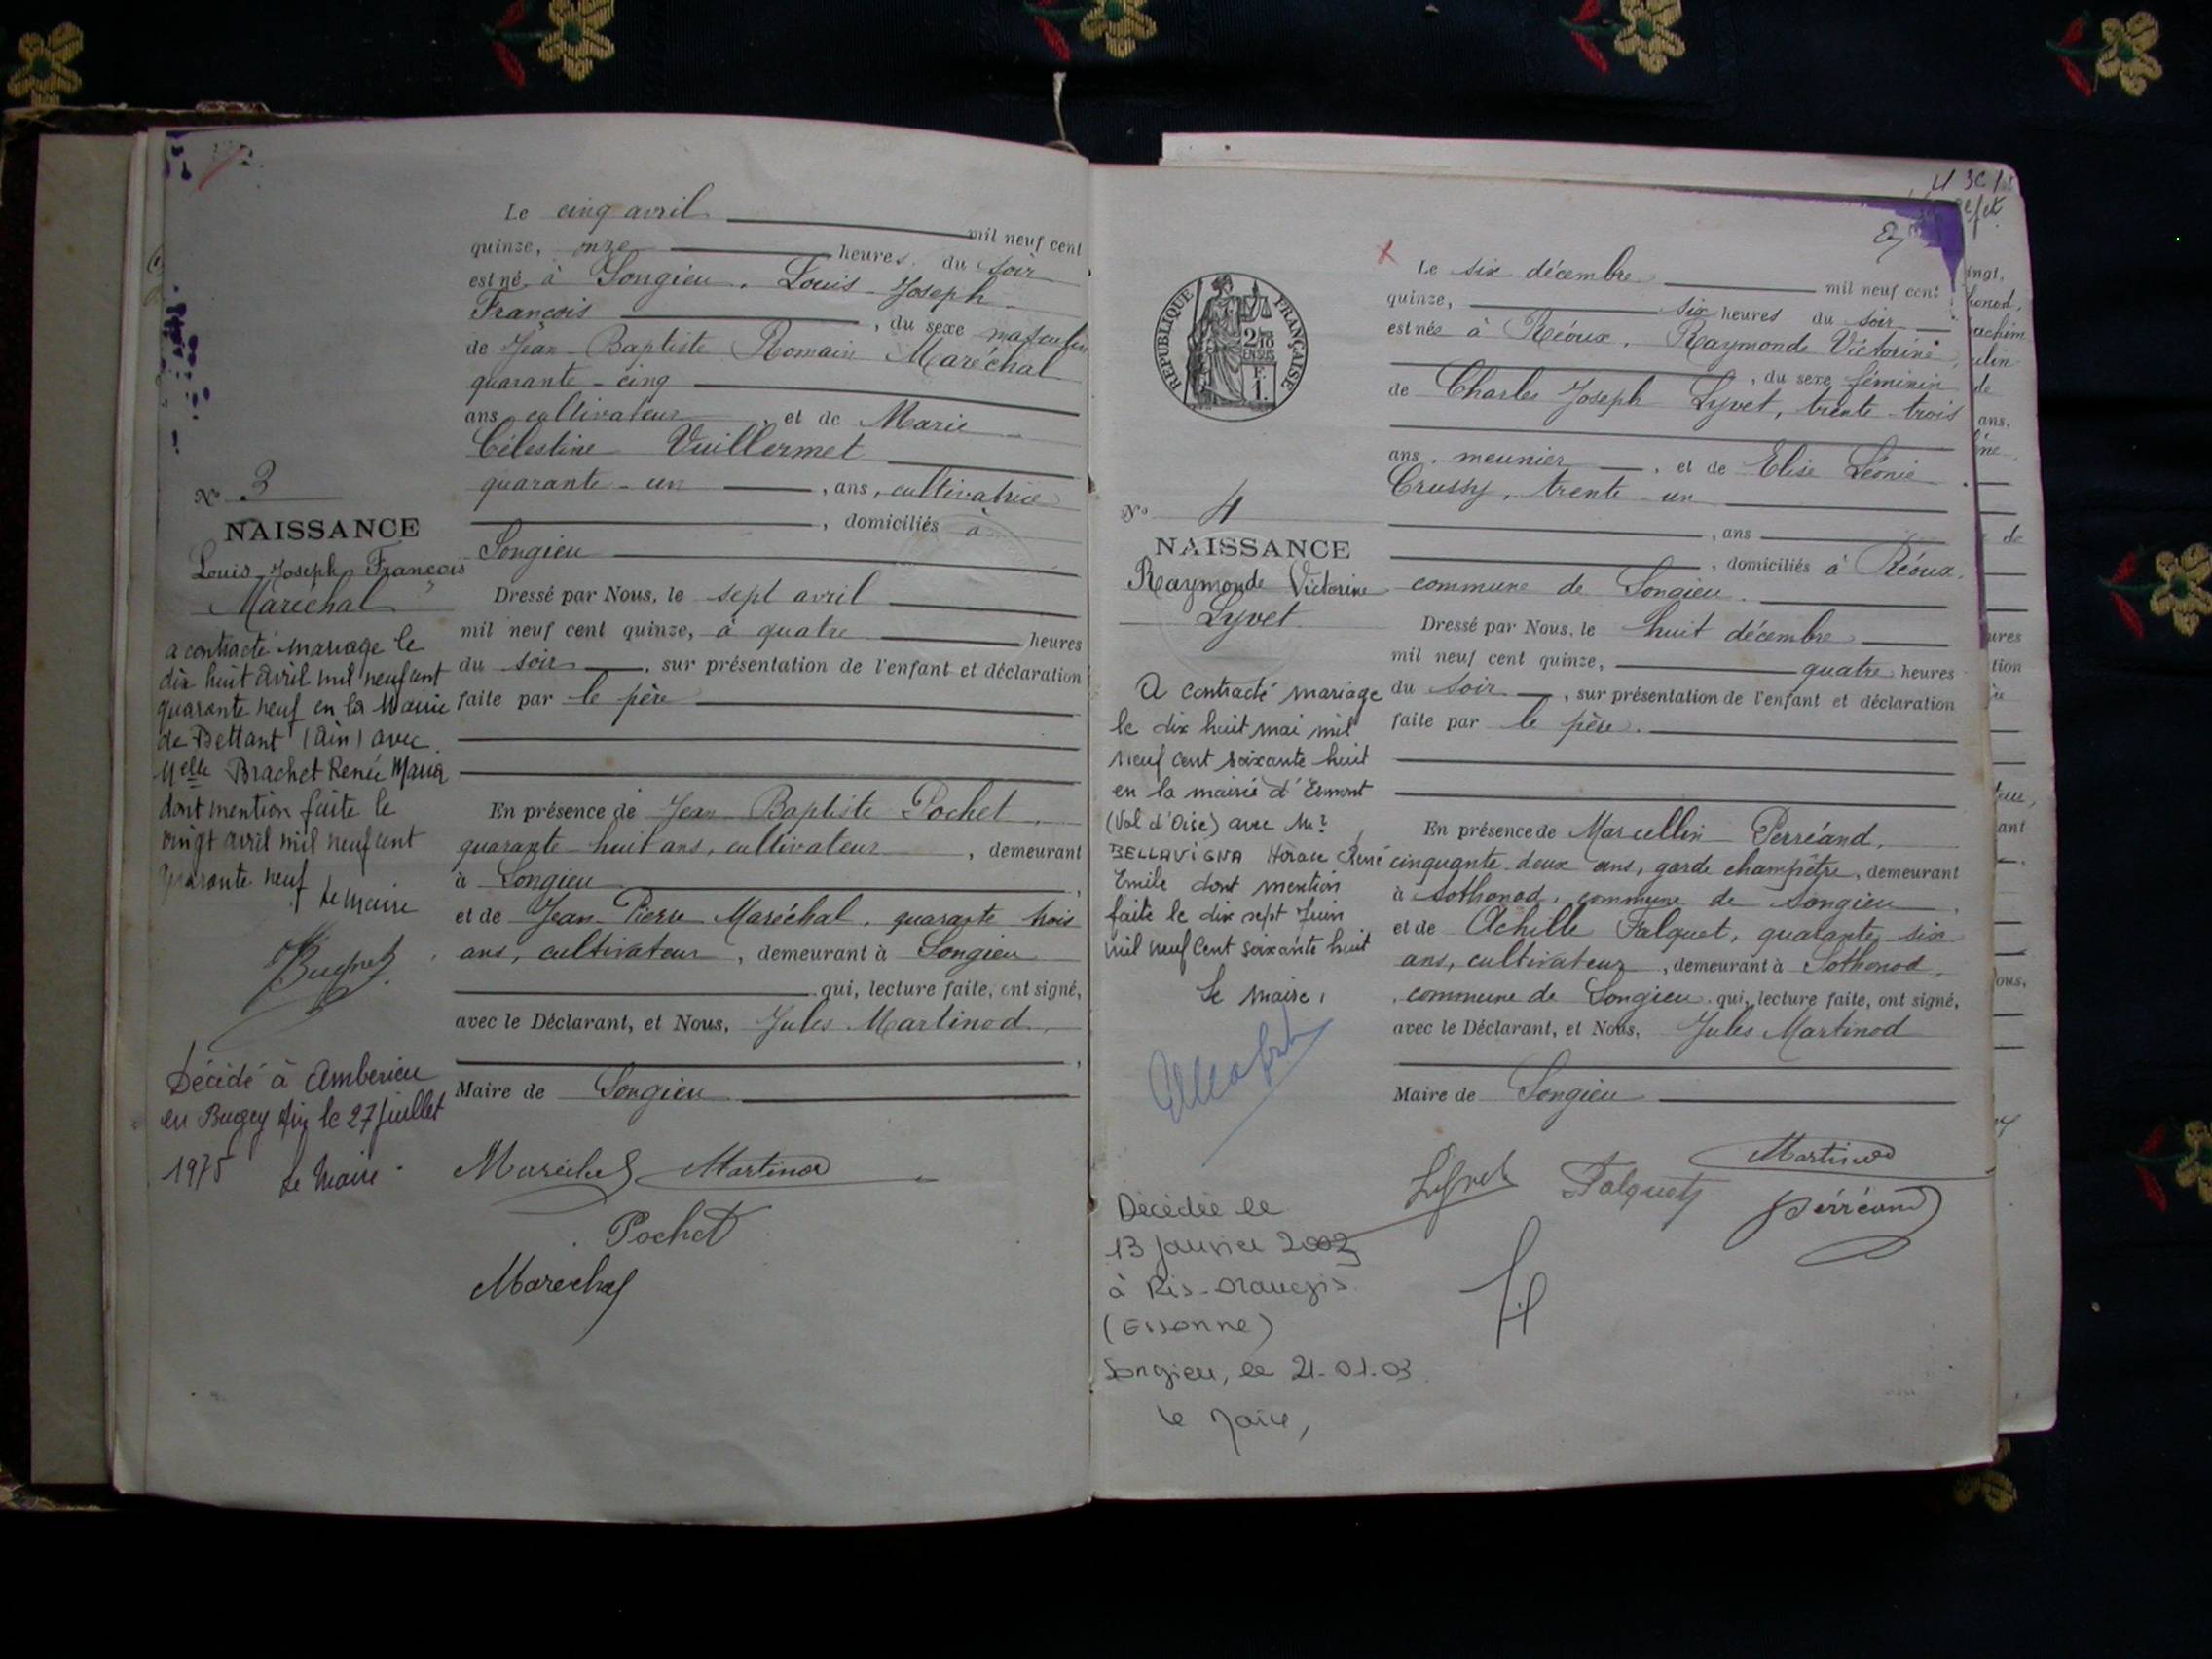 Le cinq avril mil neuf cent
quinze, onze heures du soir
est né à Songieu, Louis-Joseph
François, du sexe masculin
de Jean-Baptiste Romain Maréchal
quarante-cinq
ans, cultivateur, et de Marie
Célestine Vuillermet
quarante-un, ans, cultivatrice
, domiciliés à
Songieu
Dressé par Nous, le sept avril
mil neuf cent quinze, à quatre heures
du soir, sur présentation de l'enfant et déclaration
faite par le père
En présence de Jean-Baptiste Pochet,
quarante-huit ans, cultivateur, demeurant
à Songieu,
et de Jean-Pierre Maréchal, quarante trois
ans, cultivateur, demeurant à Songieu
qui, lecture faite, ont signé,
avec le Déclarant, et Nous, Jules Martinod,
Maire de Songieu
Maréchal Martinod
Pochet
Marechal
No 3
NAISSANCE
Louis-Joseph François
Maréchal
a contracté mariage le
dix huit avril mil neuf cent
quarante neuf en la Mairie
de Bettant (Ain) avec
Melle Brachet Renée Maria
dont mention faite le
vingt avril mil neuf cent
quarante neuf
Le maire
Décédé à Ambérieu
en Bugey Ain le 27 juillet
1975 Le Maire
RÉPUBLIQUE FRANÇAISE
2/10
EN SUS
1 F.
Le six décembre mil neuf cent
quinze, six heures du soir
est née à Réoux, Raymonde Victorine
, du sexe féminin
de Charles Joseph Lyvet, trente-trois
ans, meunier, et de Elise Léonie
Crussy, trente-un
, ans
, domiciliés à Réoux,
commune de Songieu.
Dressé par Nous, le huit décembre
mil neuf cent quinze, quatre heures
du soir, sur présentation de l'enfant et déclaration
faite par le père.
En présence de Marcellin Perréand,
cinquante-deux ans, garde champêtre, demeurant
à Sothonod, commune de Songieu,
et de Achille Falquet, quarante-six
ans, cultivateur, demeurant à Sothonod,
commune de Songieu. qui, lecture faite, ont signé,
avec le Déclarant, et Nous, Jules Martinod
Maire de Songieu
Martinod
Lyvet Falquet Perréand
No 4
NAISSANCE
Raymonde Victorine
Lyvet
A contracté mariage
le dix huit mai mil
neuf cent soixante huit
en la mairie d'Ermont
(Val d'Oise) avec Mr
BELLAVIGNA Horace René
Emile dont mention
faite le dix sept Juin
mil neuf cent soixante huit
Le maire,
Décédée le
13 janvier 2003
à Ris-Orangis
(Essonne)
Songieu, le 21-01-03
Le Maire,